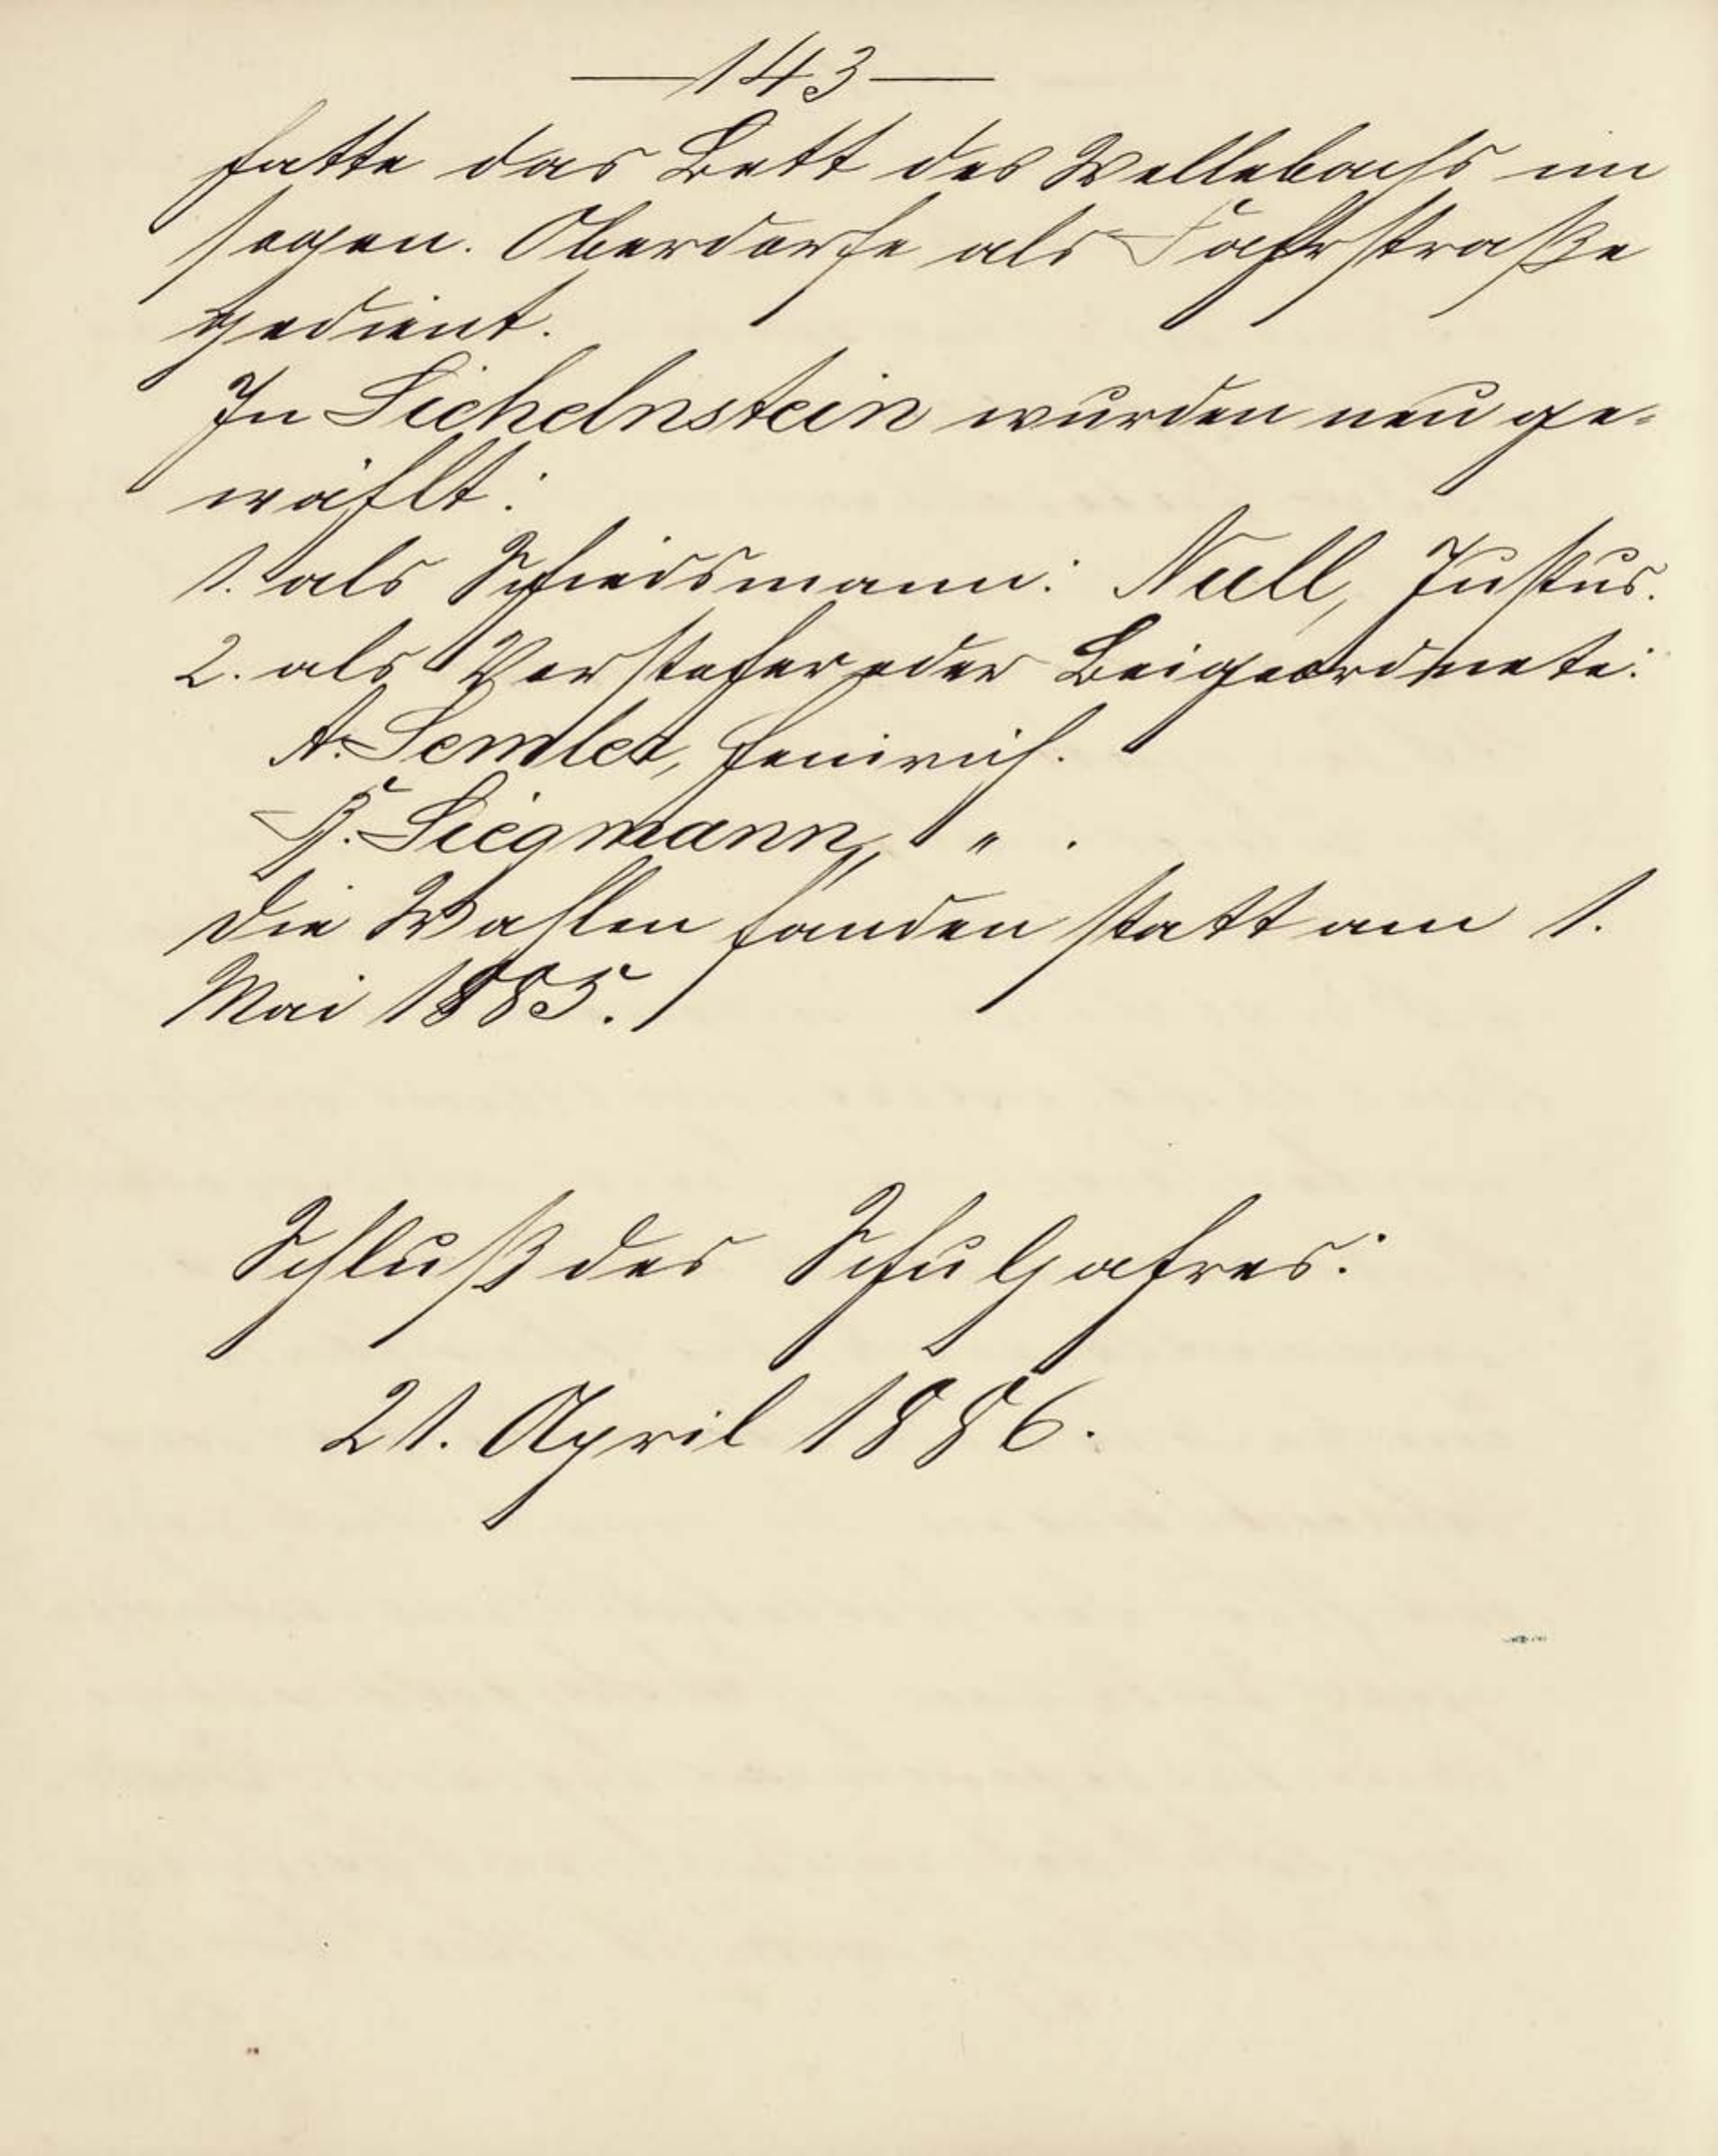 —143—
hatte das Bett des Wellebachs im
sogen. Oberdorfe als Fahrstraße
gedient.
In Sichelnstein wurden neu ge-
wählt:
1. als Schiedsmann: Null, Justus.
2. als Vorsteher oder Beigeordnete:
A. Semler, Heinrich.
B. Siegmann, " .
Die Wahlen fanden statt am 1.
Mai 1885.
Schluß des Schuljahres:
21. April 1886.